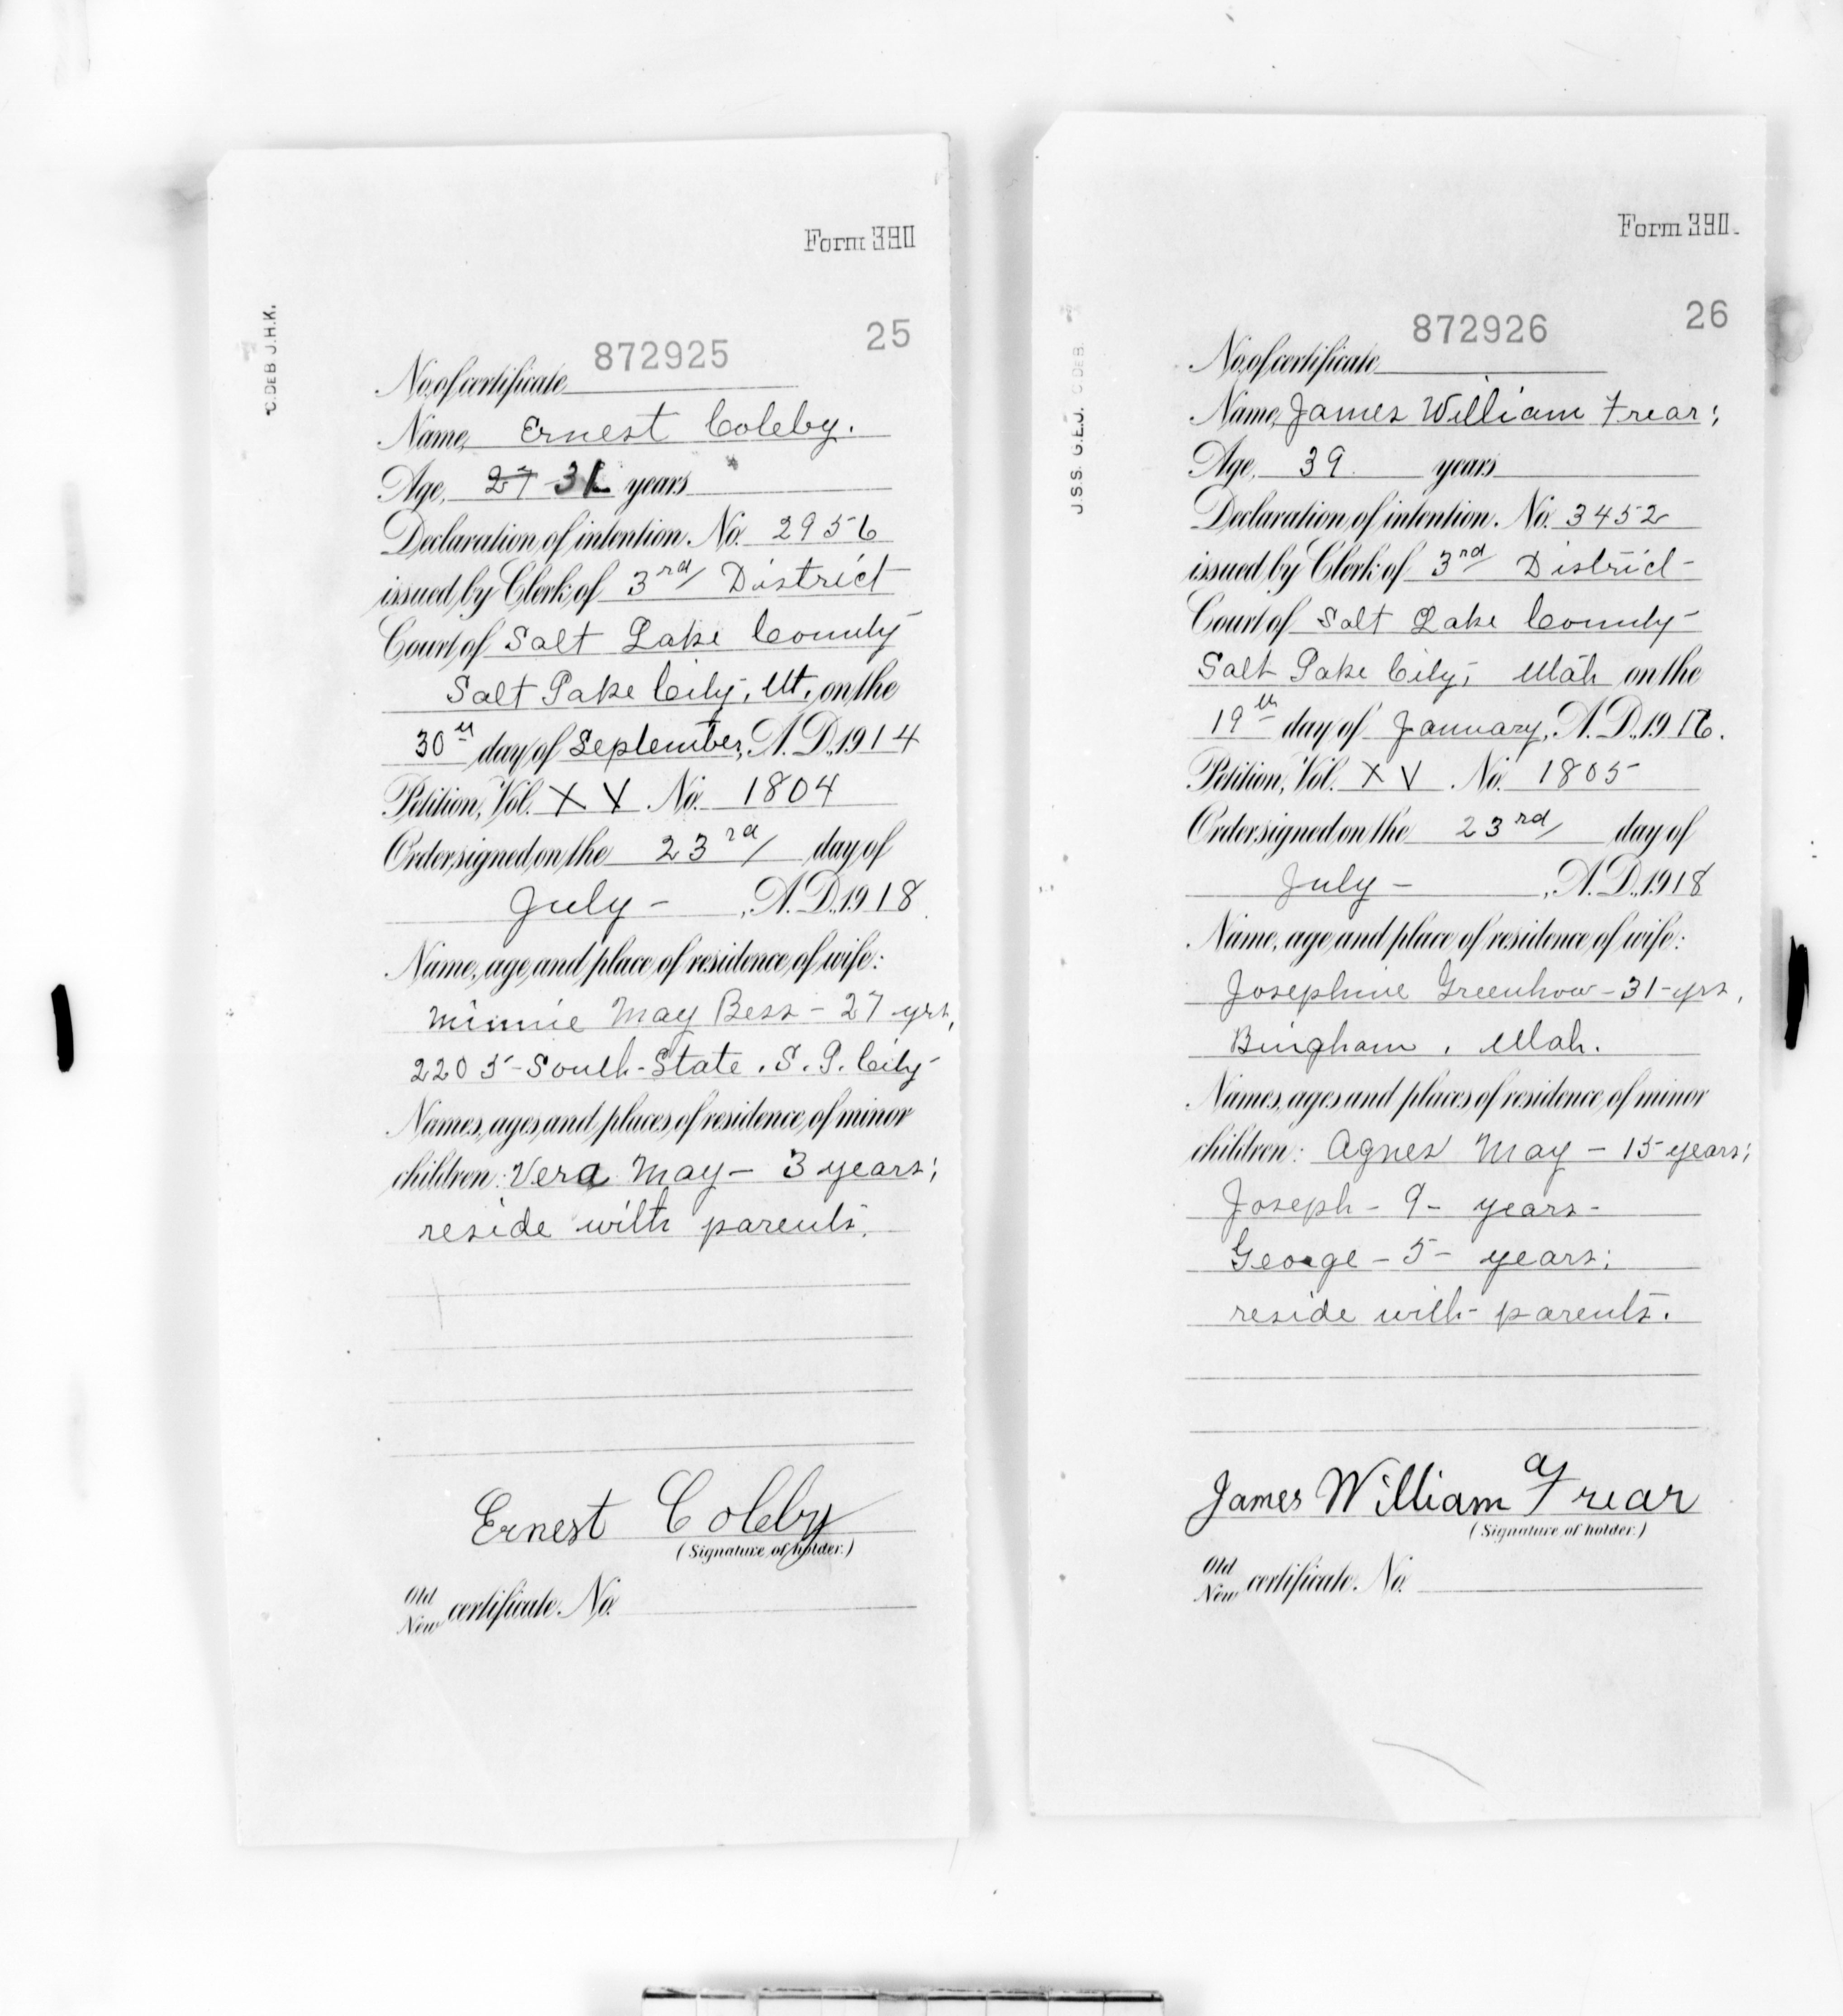 Form 330
C. DEB J.H.K.
872925 25
No. of certificate
Name, Ernest Coleby.
Age, 27 31 years
Declaration of intention, No. 2956
issued by Clerk of 3rd District
Court of Salt Lake County
Salt Lake City, Ut, on the
30th day of September, A. D. 1914
Petition, Vol. XV No. 1804
Order signed on the 23rd day of
July - , A. D. 1918
Name, age and place of residence of wife:
Minnie May Bess - 27 yrs,
2205 - South - State. S. L. City
Names, ages and places of residence of minor
children: Vera May - 3 years;
reside with parents.
Ernest Coleby
(Signature of holder.)
Old
New certificate No.
Form 330.
J.S.S. G.E.J. C DEB.
872926 26
No. of certificate
Name, James William Frear;
Age, 39 years
Declaration of intention, No. 3452
issued by Clerk of 3rd District -
Court of Salt Lake County -
Salt Lake City, Utah on the
19th day of January, A. D. 1916.
Petition, Vol. XV . No. 1805
Order signed on the 23rd day of
July - , A. D. 1918
Name, age and place of residence of wife:
Josephine Greenhow - 31 - yrs,
Bingham, Utah.
Names, ages and places of residence of minor
children: Agnes May - 15 years;
Joseph - 9 - years -
George - 5 - years;
reside with parents.
James William Frear
(Signature of holder.)
Old
New certificate No.